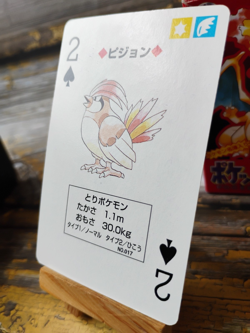 2
◆ピジョン◆
とりポケモン
たかさ 1.1m
おもさ 30.0kg
タイプ1/ノーマル タイプ2/ひこう
NO.017
2
ポケ